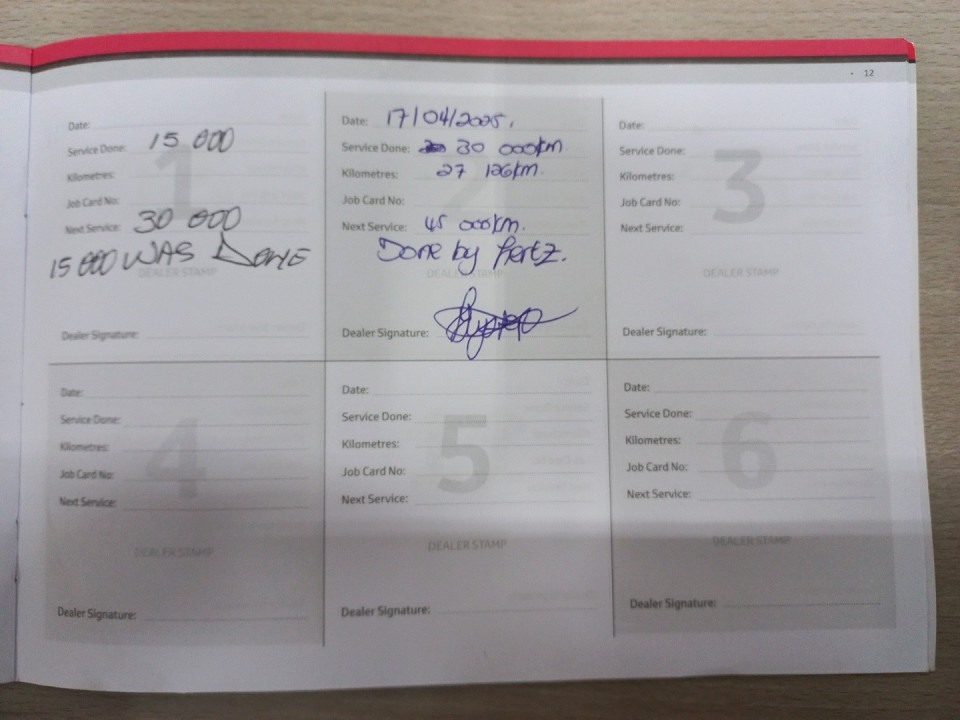 12
Date:
Service Done: 15 000
1
Kilometres:
Job Card No:
Next Service: 30 000
15 000 WAS DONE
DEALER STAMP
Dealer Signature:
Date: 17/04/2025.
Service Done: 30 000km.
2
Kilometres: 27 126km.
Job Card No:
Next Service: 45 000km.
Done by Hertz.
DEALER STAMP
Dealer Signature:
Date:
Service Done:
3
Kilometres:
Job Card No:
Next Service:
DEALER STAMP
Dealer Signature:
Date:
Service Done:
4
Kilometres:
Job Card No:
Next Service:
DEALER STAMP
Dealer Signature:
Date:
Service Done:
5
Kilometres:
Job Card No:
Next Service:
DEALER STAMP
Dealer Signature:
Date:
Service Done:
6
Kilometres:
Job Card No:
Next Service:
DEALER STAMP
Dealer Signature: